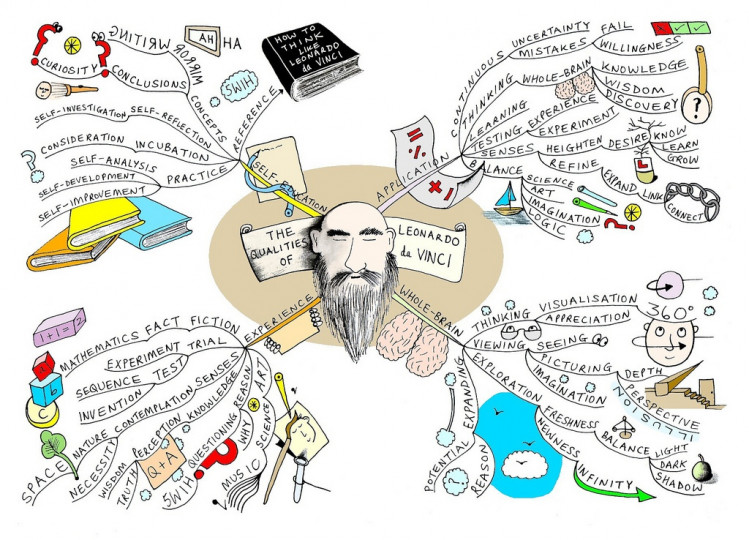 THE QUALITIES OF
LEONARDO da VINCI
SELF-EDUCATION
REFERENCE
HOW TO
THINK
LIKE
LEONARDO
da VINCI
5W1H
CONCEPTS
MIRROR WRITING
AH HA
CONCLUSIONS
CURIOSITY
SELF-REFLECTION
SELF-INVESTIGATION
INCUBATION
CONSIDERATION
PRACTICE
SELF-ANALYSIS
SELF-DEVELOPMENT
SELF-IMPROVEMENT
APPLICATION
CONTINUOUS
UNCERTAINTY
FAIL
MISTAKES
WILLINGNESS
THINKING
WHOLE-BRAIN
KNOWLEDGE
WISDOM
LEARNING
EXPERIENCE
DISCOVERY
TESTING
EXPERIMENT
SENSES
HEIGHTEN
DESIRE
KNOW
LEARN
GROW
L
REFINE
EXPAND
LINK
CONNECT
BALANCE
SCIENCE
ART
IMAGINATION
LOGIC
WHOLE-BRAIN
THINKING
VISUALISATION
APPRECIATION
360°
VIEWING
SEEING
EXPLORATION
PICTURING
DEPTH
PERSPECTIVE
ILLUSION
IMAGINATION
FRESHNESS
BALANCE
LIGHT
DARK
SHADOW
NEWNESS
INFINITY
EXPANDING
POTENTIAL
REASON
EXPERIENCE
FACT
FICTION
MATHEMATICS
1+1=2
TRIAL
EXPERIMENT
TEST
SEQUENCE
INVENTION
a
b
c
SENSES
CONTEMPLATION
NATURE
SPACE
NECESSITY
KNOWLEDGE
PERCEPTION
WISDOM
TRUTH
Q+A
REASON
QUESTIONING
WHY
5W1H
ART
SCIENCE
MUSIC